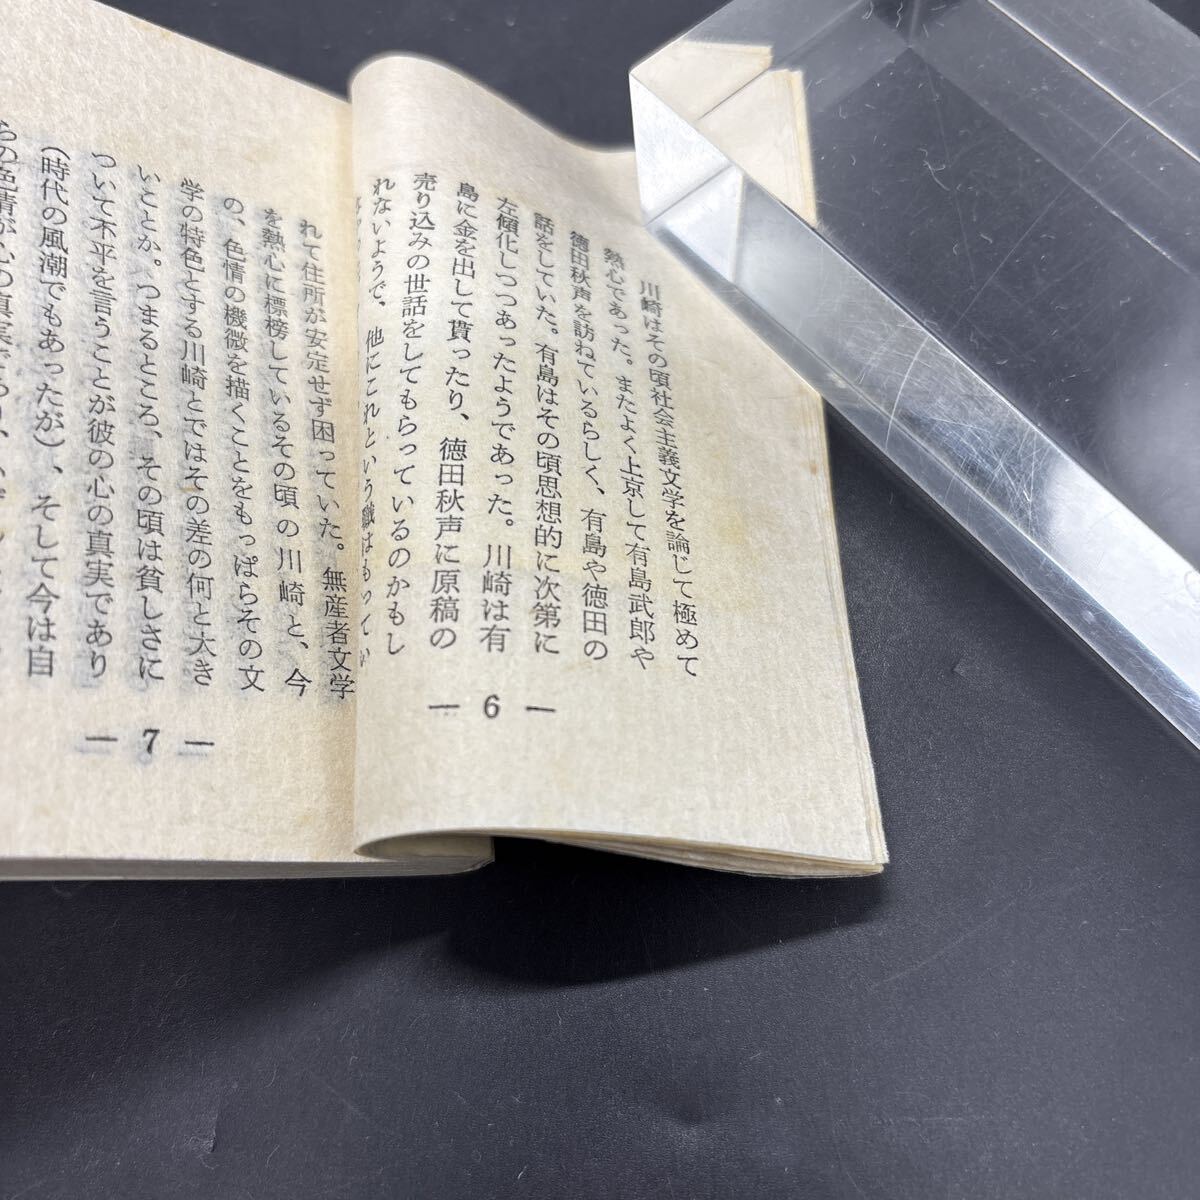 川崎はその頃社会主義文学を論じて極めて
熱心であった。またよく上京して有島武郎や
徳田秋声を訪ねているらしく、有島や徳田の
話をしていた。有島はその頃思想的に次第に
左傾化しつつあったようであった。川崎は有
島に金を出して貰ったり、徳田秋声に原稿の
売り込みの世話をしてもらっているのかもし
れないようで、他にこれという職はもってい
— 6 —
れて住所が安定せず困っていた。無産者文学
を熱心に標榜しているその頃の川崎と、今
の、色情の機微を描くことをもっぱらその文
学の特色とする川崎とではその差の何と大き
いことか。つまるところ、その頃は貧しさに
ついて不平を言うことが彼の心の真実であり
(時代の風潮でもあったが)、そして今は自
らの色情が心の真実であり、
— 7 —